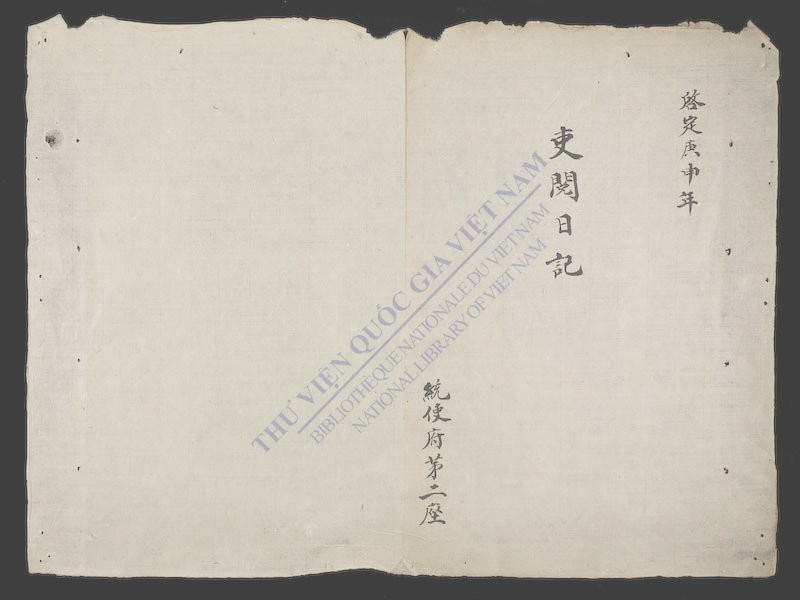 啓定庚申年
吏閱日記
統使府第二座
THƯ VIỆN QUỐC GIA VIỆT NAM
BIBLIOTHÈQUE NATIONALE DU VIETNAM
NATIONAL LIBRARY OF VIETNAM